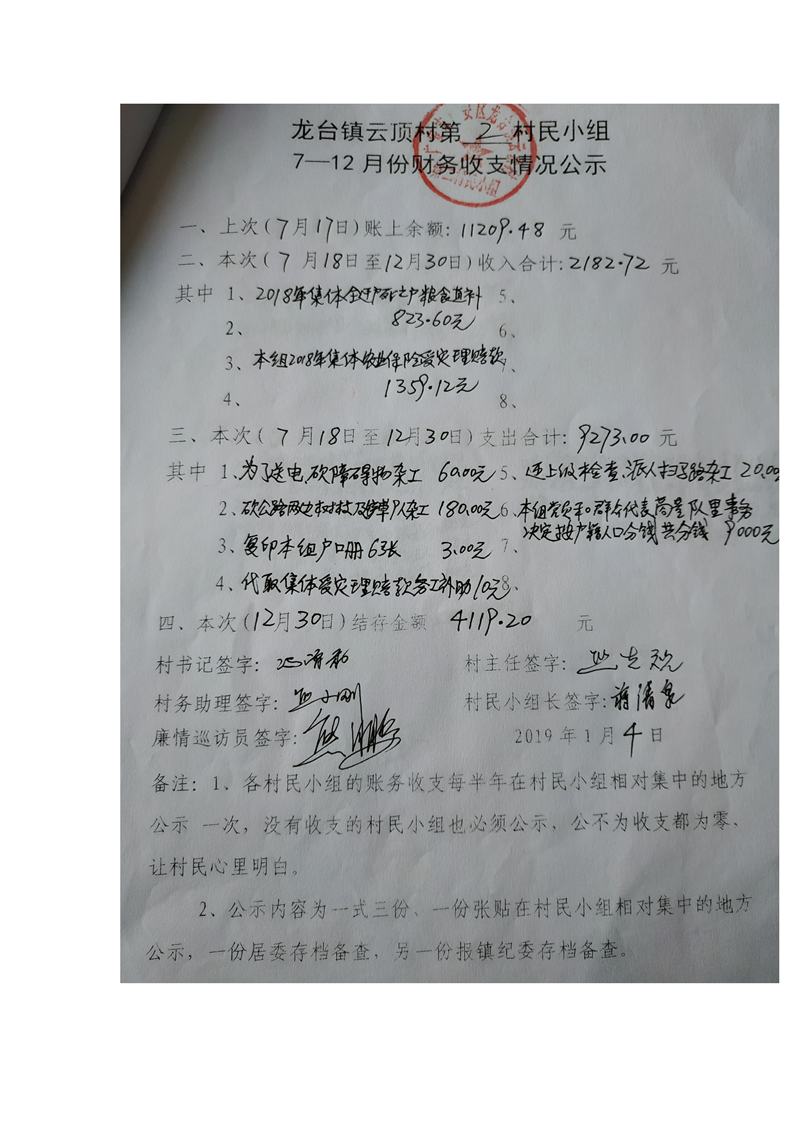 龙台镇云顶村第2村民小组
7—12月份财务收支情况公示
一、上次(7月17日)账上余额:11209.48 元
二、本次(7月18日至12月30日)收入合计:2182.72 元
其中 1、2018年集体 粮食直补 5、
2、 823.60元 6、
3、本组2018年集体农业保险受灾理赔款 7、
4、 1359.12元 8、
三、本次(7月18日至12月30日)支出合计:9273.00 元
其中 1、为了送电,砍障碍物杂工 60.00元 5、迎上级检查,派人扫路杂工 20.00
2、砍公路两边树枝及 杂工 180.00元 6、本组党员和群众代表商量队里事务
决定按户籍人口分钱共分钱 9000元
3、复印本组户口册63张 3.00元 7、
4、代取集体受灾理赔款务工补助10元 8、
四、本次(12月30日)结存金额 4119.20 元
村书记签字: 村主任签字:
村务助理签字: 村民小组长签字:蒋清泉
廉情巡访员签字: 2019年1月4日
备注:1、各村民小组的账务收支每半年在村民小组相对集中的地方
公示 一次,没有收支的村民小组也必须公示,公不为收支都为零、
让村民心里明白。
2、公示内容为一式三份、一份张贴在村民小组相对集中的地方
公示,一份居委存档备查,另一份报镇纪委存档备查。